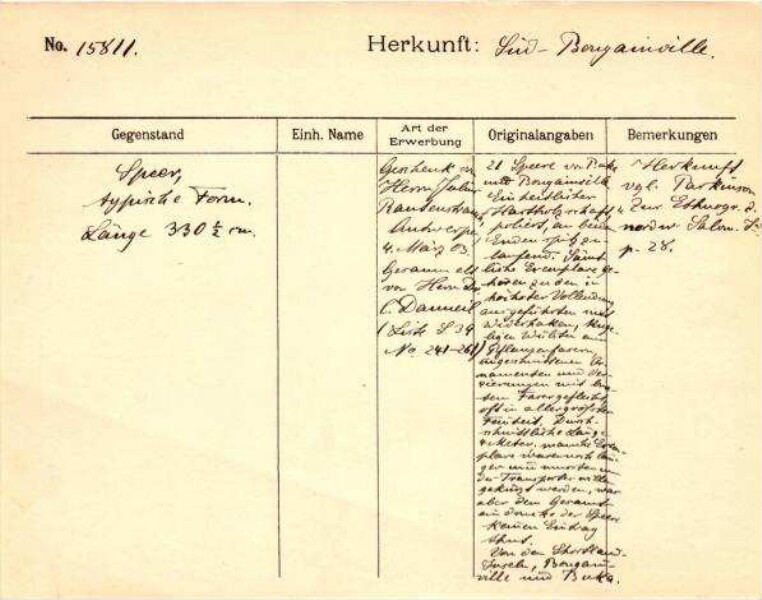 No. 15811.
Herkunft: Süd-Bougainville.
Gegenstand
Einh. Name
Art der Erwerbung
Originalangaben
Bemerkungen
Speer,
typische Form.
Länge 330 ½ cm.
Geschenk von
Herrn Julius
Rautenstrauch,
Antwerpen
4. März 03.
Gesammelt
von Herrn Dr.
C. Danneil
(Liste S 39
No. 241-261)
21 Speere von Buka
und Bougainville
Einheitlicher
Hartholzschaft,
poliert, an beiden
Enden spitz zu-
laufend. Sämt-
liche Exemplare ge-
hören zu den in
höchster Vollendung
ausgeführten mit
Widerhaken, kuge-
ligen Wülsten aus
Pflanzenfasern,
eingeschnittenen Or-
namenten und Ver-
zierungen mit
Fasergeflecht,
oft in allergrößter
Feinheit. Durch-
schnittliche Länge
4 Meter. manche Exem-
plare waren noch län-
ger und mussten um
der Transporter wille
gekürzt werden, was
aber dem Gesamt-
eindrucke der Speere
keinen Eintrag
thut.
Von den Shortland-
Inseln, Bougain-
ville und Buka.
Herkunft
vgl. Parkinson
"Zur Ethnogr. d.
nordw. Salom. I."
p. 28.